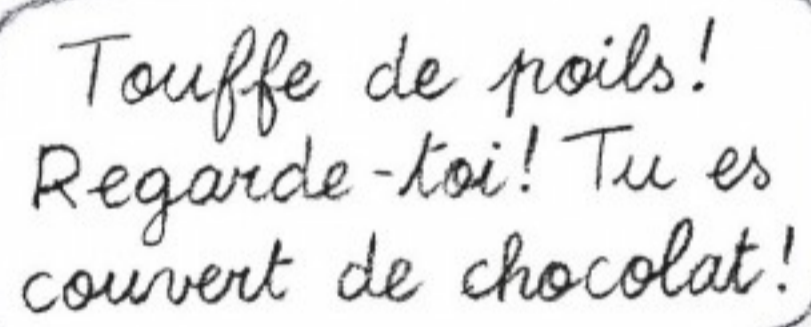 Touffe de poils!
Regarde-toi! Tu es
couvert de chocolat!